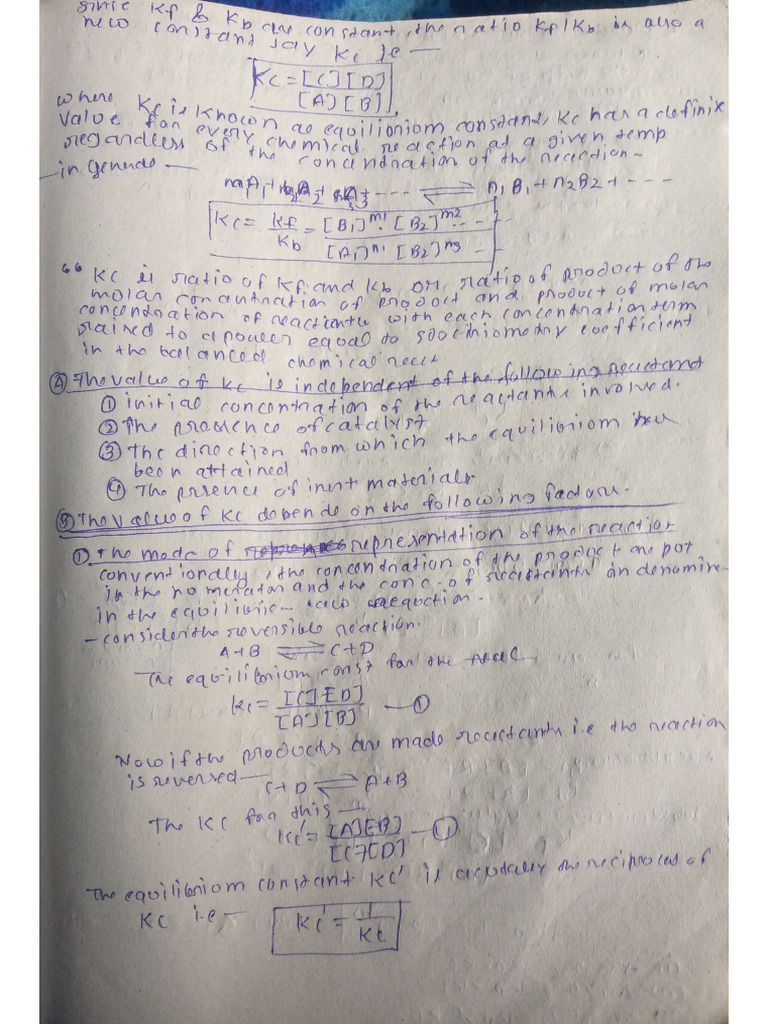 since Kf & Kb are constant, the ratio Kf/Kb is also a
new constant say Kc ie —
Kc = [C][D]
[A][B]
where Kc is known as equilibrium constant, Kc has a definite
value for every chemical reaction at a given temp
regardless of the concentration of the reaction -
- in general -
A1 + A2 + A3 + ---- ⇌ n1B1 + n2B2 + ---
Kc = Kf/Kb = [B1]^m1 . [B2]^m2 - - -
[A1]^n1 [B2]^n2 - -
“ Kc is ratio of Kf and Kb or ratio of product of the
molar concentration of product and product of molar
concentration of reactants with each concentration term
raised to a power equal to stochiometry coefficient
in the balanced chemical react
Ⓐ The value of Kc is independent of the following reactant
① initial concentration of the reactants involved.
② The presence of catalyst
③ The direction from which the equilibrium has
been attained
④ The prsence of inert materials.
Ⓑ The value of Kc depends on the following factors.
① The mode of representation of the reaction
conventionally, the concentration of the product are put
in the nomerator and the conc - of reactants in denomin-
in the equilibrium
- consider the reversible reaction.
A+B ⇌ C+D
The equilibrium const for the
Kc = [C][D] — ①
[A][B]
Now if the products are made reactants i.e the reaction
is reversed —
C+D ⇌ A+B
The Kc for this →
Kc' = [A][B] — ②
[C][D]
The equilibrium constant Kc' is acutally the reciprocal of
Kc i.e — Kc' = 1/Kc